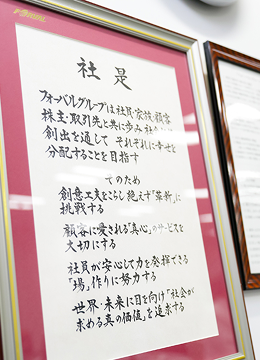 社是
フォーバルグループは社員・家族・顧客
株主・取引先と共に歩み
創出を通して それぞれに幸せを
分配することを目指す
そのため
創意工夫をこらし絶えず「革新」に
挑戦する
顧客に愛される「真心」のサービスを
大切にする
社員が安心して力を発揮できる
「場」作りに努力する
世界・未来に目を向け「社会が
求める真の価値」を追求する